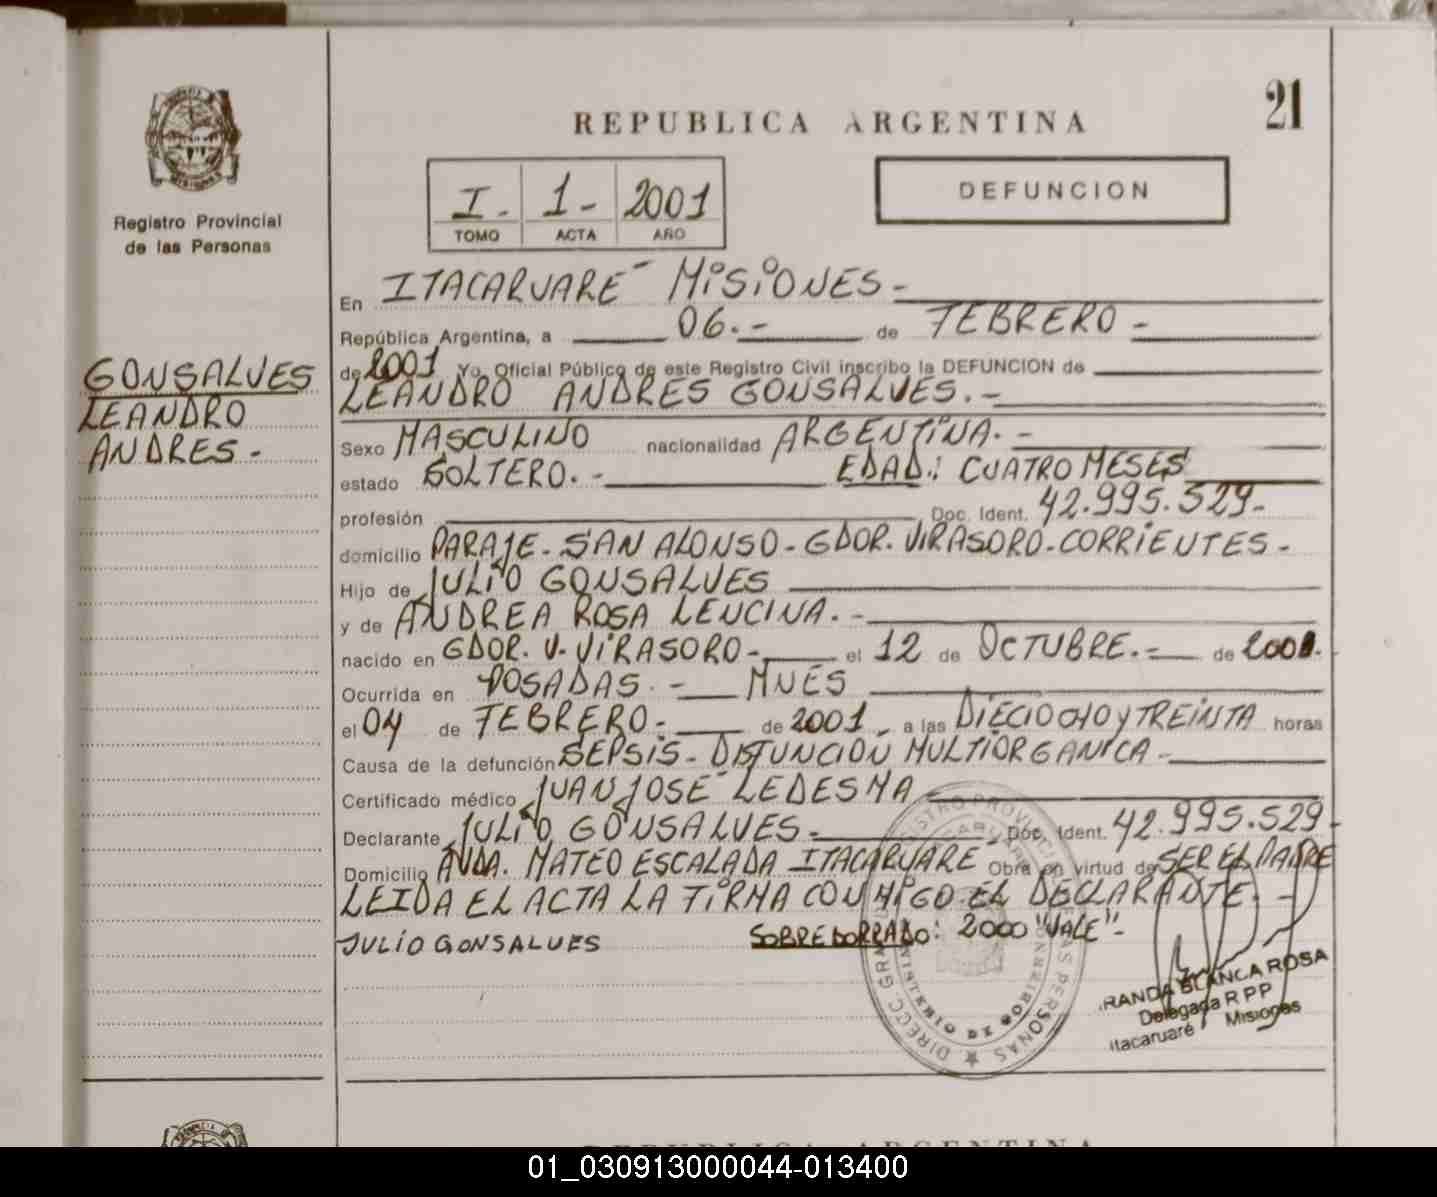 21
REPUBLICA ARGENTINA
MISIONES
Registro Provincial
de las Personas
I.- 1- 2001
TOMO ACTA AÑO
DEFUNCION
GONSALVES
LEANDRO
ANDRES-
En ITACARUARE MISIONES-
República Argentina, a 06.- de FEBRERO-
de 2001 Yo, Oficial Público de este Registro Civil inscribo la DEFUNCION de
LEANDRO ANDRES GONSALVES.-
Sexo MASCULINO nacionalidad ARGENTINA.-
estado SOLTERO.- EDAD: CUATRO MESES
profesión Doc. Ident. 42.995.529-
domicilio PARAJE-SAN ALONSO-GDOR. VIRASORO-CORRIENTES-
Hijo de JULIO GONSALVES
y de ANDREA ROSA LENCINA.-
nacido en GDOR. V. VIRASORO- el 12 de OCTUBRE.- de 2000.
Ocurrida en POSADAS.- MNES
el 04 de FEBRERO- de 2001- a las DIECIOCHO y TREINTA horas
Causa de la defunción SEPSIS-DISFUNCION MULTIORGANICA-
Certificado médico JUAN JOSE LEDESMA
Declarante JULIO GONSALVES- Doc. Ident. 42.995.529-
Domicilio AVDA. MATEO ESCALADA ITACARUARE Obra en virtud de SER EL PADRE
LEIDA EL ACTA LA FIRMA CONMIGO EL DECLARANTE.-
JULIO GONSALVES SOBREBORRADO: 2000 "VALE"-
RANDA BLANCA ROSA
Delegada R P P
Itacaruaré Misiones
REPUBLICA ARGENTINA
01_030913000044-013400